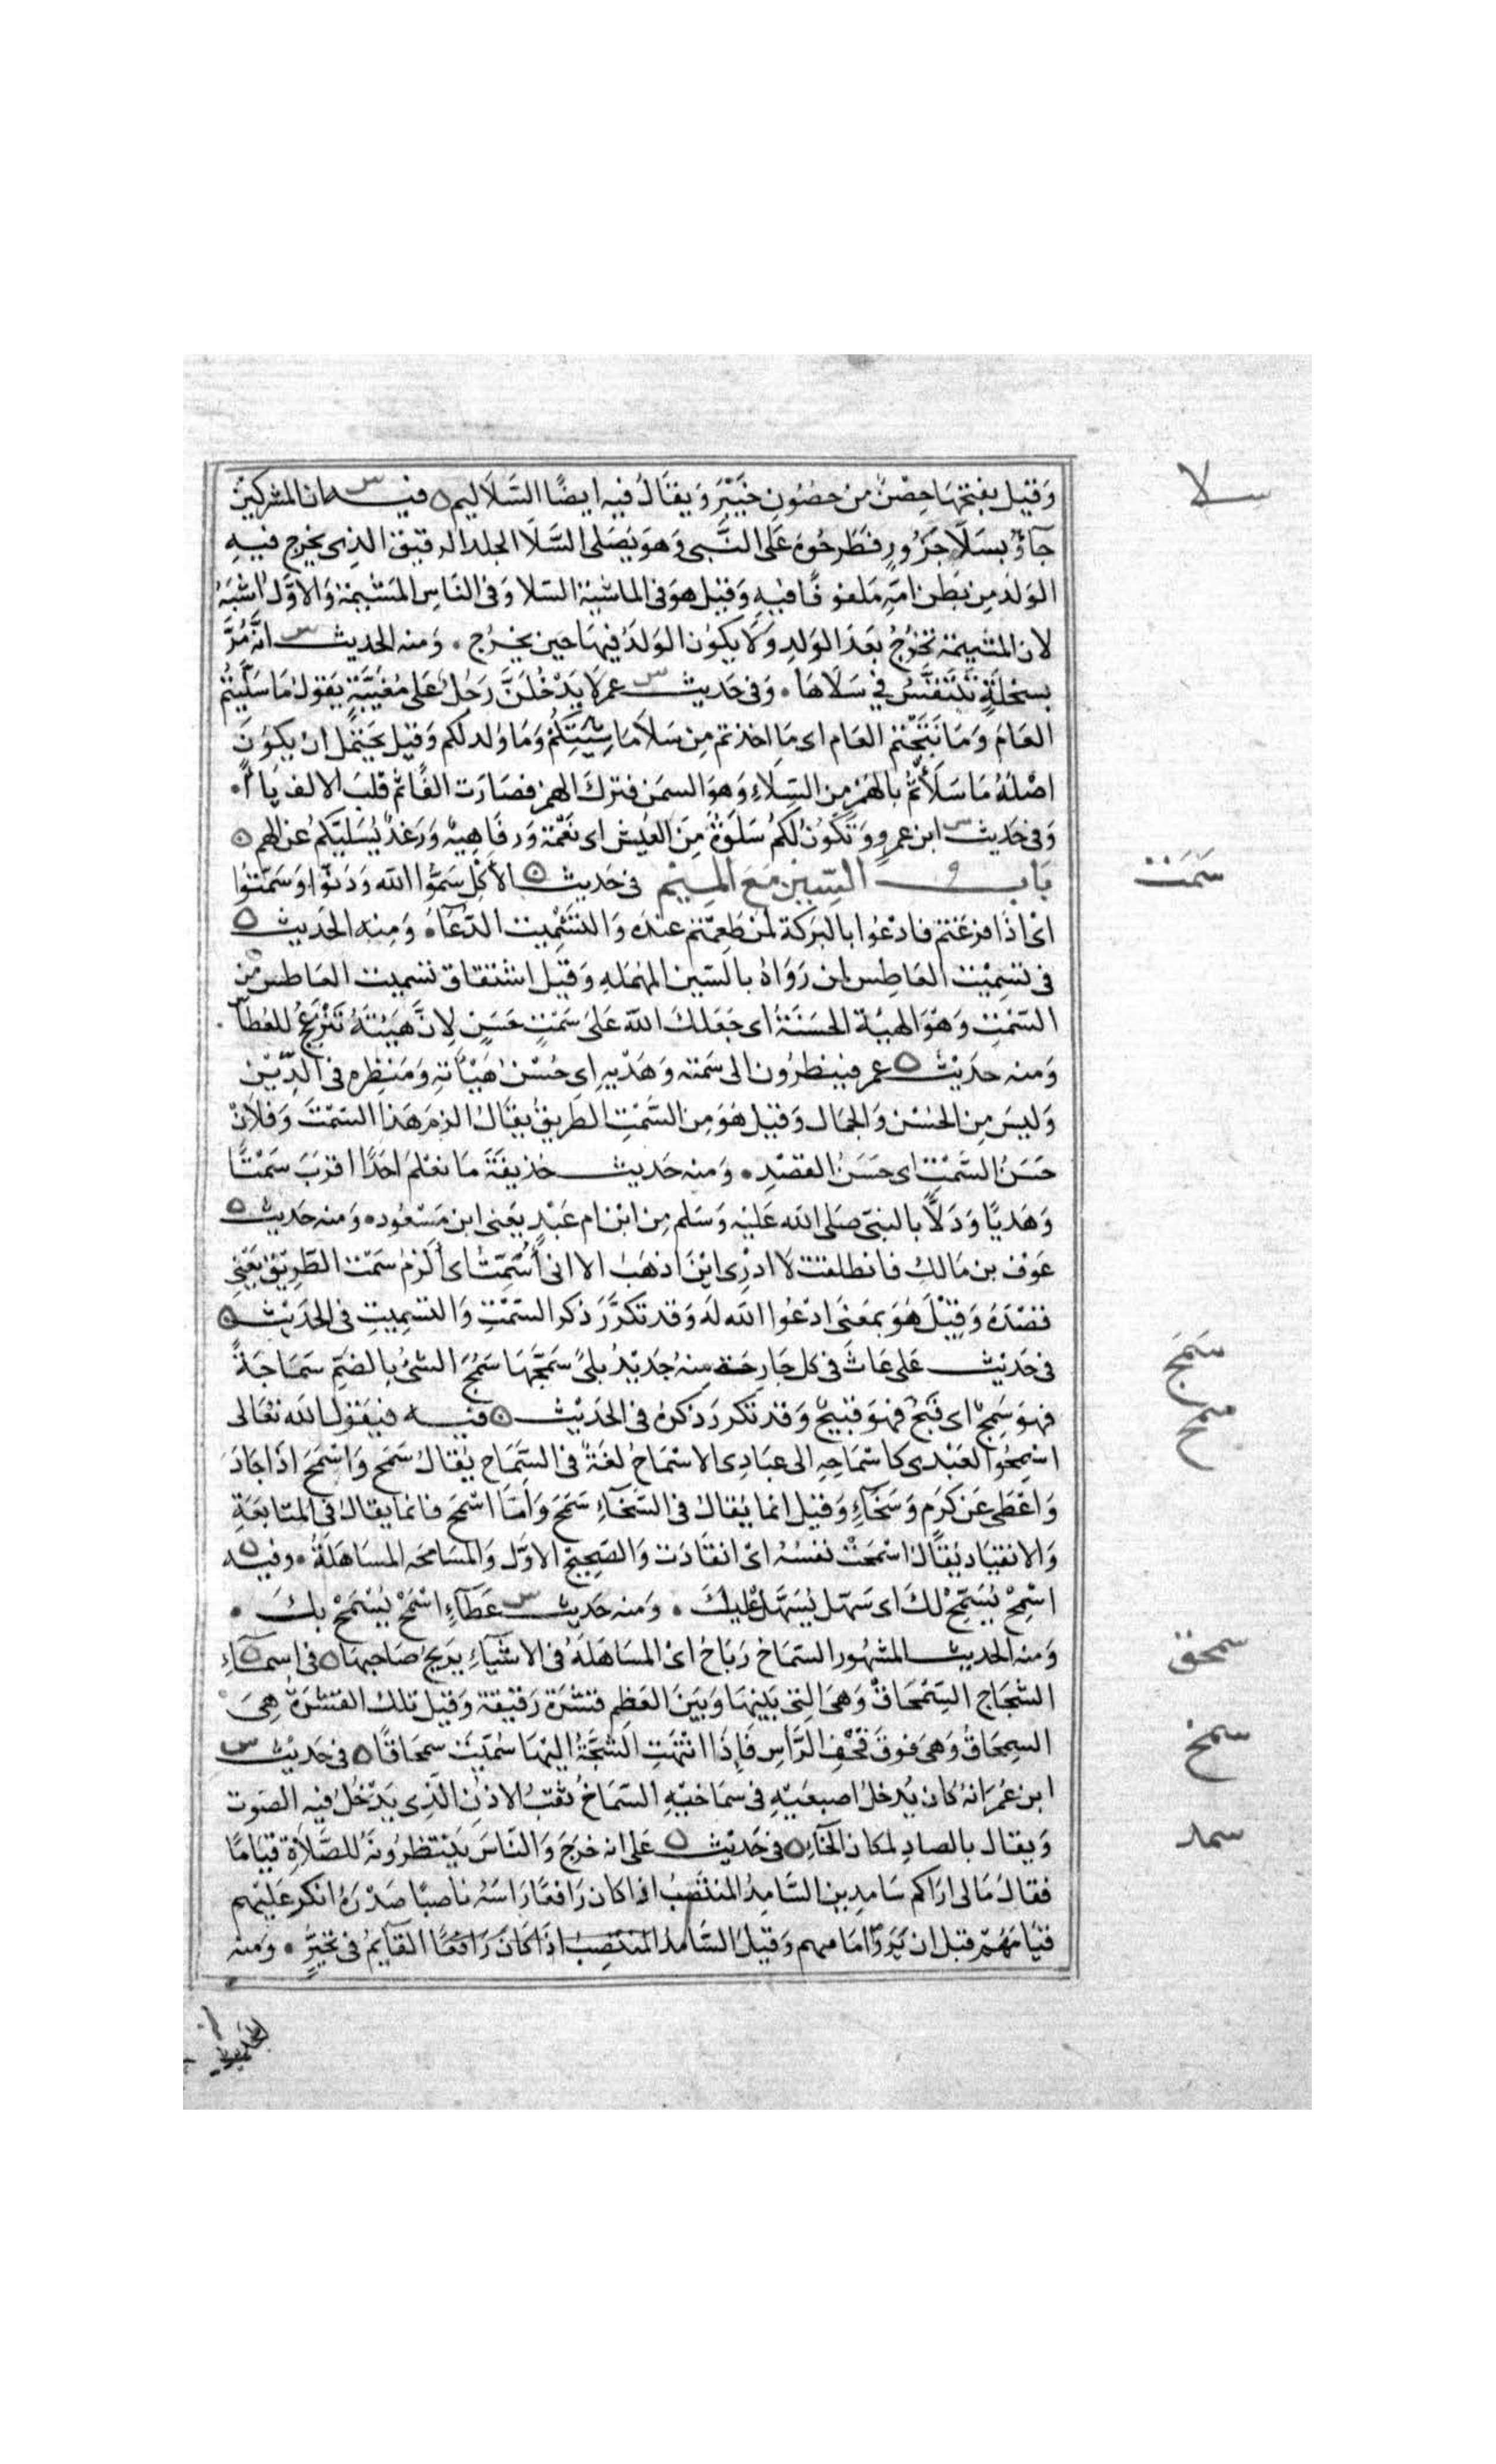 سلا
وَقيل بفتحها حِصْنٌ من حصُونِ خَيْبَرَ وَيقَالُ فيه ايضًا السَّلَاليم ه فيـه س ان المشركين
جآؤا بسَلَا جَزُورٍ فطَرحُوهُ عَلى النَّبى وَهوَ يُصَلى السَّلَا الجلد الرقيق الذِى يخرج فيهِ
الوَلدُ مِن بَطن امّهِ مَلفوفًا فيهِ وَقيل هوَ فى الماشيَة السلا وَفى النَاسِ المَشيمة وَالاوَّل اشبَهُ
لان المشيمة تخرُجُ بعَد الوَلدِ وَلَا يكوُن الوَلدُ فيهَا حين يخرُج . وَمنه الحديث س انَّه مُرَّ
بسخلَةٍ تتَنَفَّسُ فِي سَلَاهَا . وَفى حَديث س عمر لَا يَدْخُلَنَّ رَجُلٌ عَلى مُغيبَةٍ يَقولُ مَا سَلَيْتُمُ
العَامَ وَمَا نَتَجْتم العَام اى مَا اخذتم مِن سَلَا مَاشِيَتِكُمْ وَمَا وُلد لكم وَقيل يَحتمل ان يكوُنَ
اصْلهُ مَا سَلَأتُم بالهَمْز مِن السِّلاءِ وَهوَ السمَن فترك الهمز فصَارَت الفًا ثم قلبَ الالف يَاءً .
وَفى حَديث س ابن عمرٍو وَتكُونُ لكُم سَلْوَةٌ مِنَ العَيش اى نَعْمَة وَرفاهِيةٌ وَرَغدٌ يُسَليَّكمُ عن الهم ه
سَمَت
بَابــ السِّين مَعَ المِيْم فى حَديث ه الأكلِ سَمّوا الله وَدَنّوُا وَسَمّتوُا
اىْ اذَا فرغتم فادْعُوا بالبَركة لمَن طَعِمْتم عندَه وَالتسْمِيت الدّعَآءُ . وَمِنه الحَديث ه
فى تسْمِيْت العَاطِس لمن رَوَاهُ بالسّين المهْمَلهِ وَقيل اشتقاق تسميت العَاطس مِن
السّمْتِ وَهوَ الهيئة الحسَنَةُ اى جَعَلكَ اللّهَ عَلىَ سَمْتٍ حَسَنٍ لِانَّ هَيئتَهُ تَنْزَعجُ للعُطاَسِ .
وَمنه حديْث ه عمر فينظرُون الى سَمْته وَهَدْيهِ اى حُسْن هَيْاتهِ وَمَنظِره فى الدِّيْن
وَليسَ مِن الحُسْن وَالجمَال وَقيل هوَ مِن السَّمْتِ الطَريق يُقَالُ الزم هَذا السّمْتَ وَفلَانٌ
حَسَنُ السَّمْتِ اى حَسَنُ القصْدِ . وَمنه حَديث حُذيفَةَ مَا نعْلمُ احَدًا اقرَبَ سَمْتًا
وَهَديًا وَدَلًّا بالنبىّ صَلى الله عَليْه وَسَلم مِن ابْن ام عَبْدٍ يَعْنى ابن مَسْعُود ه وَمنه حَديث ه
عَوْف بن مَالكٍ فانطلقتُ لَا ادْرِى ايْنَ اذهَبُ الا انى أُسَمِّتُ اى ألْزمُ سَمْتَ الطَّرِيْق يَعْنِى
قصْدَهُ وَقِيْلَ هُوَ بمَعْنَى ادْعُوا الله لَه وَقد تكرَّرَ ذكر السّمْتِ وَالتسْمِيتِ فى الحَدِيْث ه
سَمج
فى حَديْث عَلى عَاثَ فى كل جَارحَة مِنهُ جَديْدُ بلىً سَمَّجَهَا سَمُجَ الشئُ بالضَّمِّ سَمَاجَةً
سمح
فهوَ سَمِجٌ اى قبُحَ فهوَ قبيْحٌ وَقد تكرر ذكرهُ فى الحَديْث ه فيه فيقوْل الله تعَالى
اسْمِحُوا لعَبْدى كاسْمَاحِهِ الى عبَادى الاسْمَاحُ لغَةٌ فى السَّمَاح يُقالُ سَمح وَاسْمحَ اذَا جَادَ
وَاعْطى عَن كرَمٍ وَسَخَآءٍ وَقيل انما يُقالُ فى السَّخَآءِ سَمَحَ وَامّا اسْمحَ فانما يقالُ فى المتابعَةِ
وَالانقيَاد يُقَالُ اسْمحَتْ نفسُهُ اىْ انقَادَت وَالصّحِيحْ الاوّل وَالمُسَامحَه المُسَاهَلَةُ . وفيه ه
اسْمحْ يُسَمّحْ لكَ اى سَهّل يُسَهَّل عَليْكَ . وَمنه حَديث س عَطآءِ اسْمحْ يُسْمَحْ بكَ .
وَمنه الحديث المشهُور السّمَاحُ رَبَاحٌ اىْ المسَاهَلَةُ فى الاشيَآءِ يَرْبحُ صَاحِبها ه
سمحق
فى اسمَآءِ ه
الشّجَاج السِّمْحَاقُ وَهىَ التى بَينهَا وَبَينَ العَظم قشْرَة رَقيْقة وَقيل تلكَ القشرَةُ هِىَ
السِمحَاقُ وَهىَ فوقَ قحْفِ الرَّاسِ فَاِذَا انْتهَتِ الشَّجَّةُ اليْهَا سُمِّيَتَ سمحَاقًا ه
سمخ
فى حَديْث س
ابن عُمرَ انهُ كان يُدخلُ اصبعَيْهِ فى سمَاخيْهِ السّمَاخُ ثقبُ الاذن الَّذِى يَدْخُلُ فيْهِ الصَوت
وَيقال بالصادِ لمكان الخآءِ ه
سمد
فى حَدِيْث ه عَلى انه خرَجَ وَالنَاسُ يَنْتظرُونَهُ للصَّلَاةِ قيَامًا
فقالَ مَالى ارَاكم سَامدِين السَّامدُ المنتصَبُ اذا كان رَافعًا رَاسَهُ ناصبًا صَدْرَهُ انكر عَليْهم
قيَامَهُمْ قبل ان يَرَوْا امَامهم وَقيلَ السَّامدُ المنتصِبُ اذَا كانَ رَافعًا القآئِم فى تحيُّرٍ . وَمنه